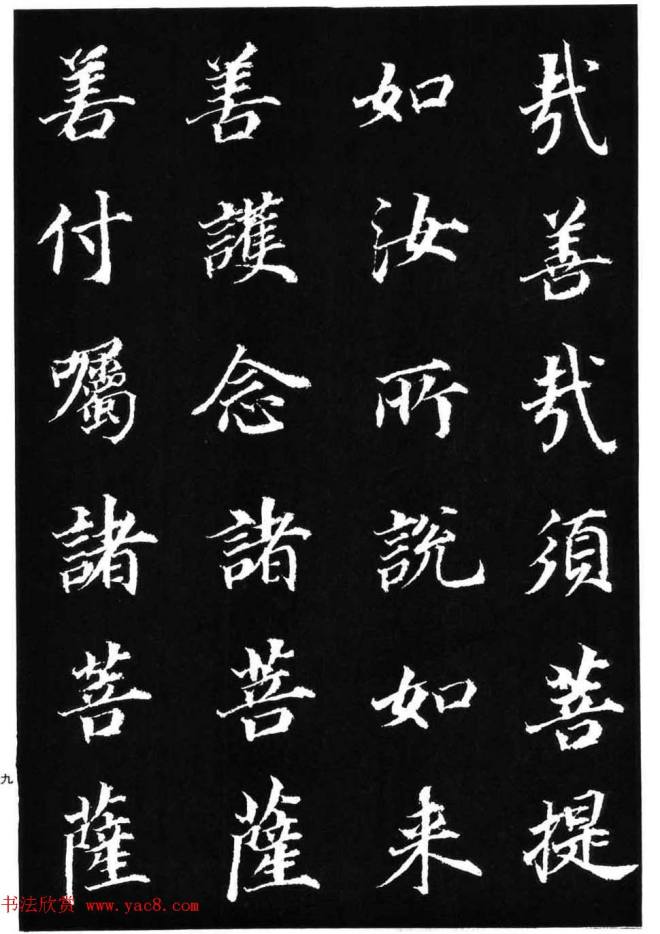 哉善哉須菩提
如汝所說如来
善護念諸菩薩
善付囑諸菩薩
九
书法欣赏 www.yac8.com